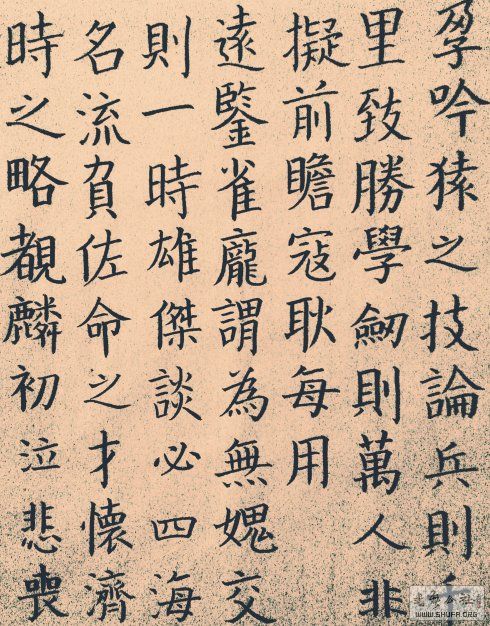 孕吟猿之技論兵則
里致勝學劒則萬人非
擬前瞻寇耿每用
遠鑒雀龐謂為無媿交
則一時雄傑談必四海
名流負佐命之才懷濟
時之略覩麟初泣悲喪
WWW.SHUFA.ORG